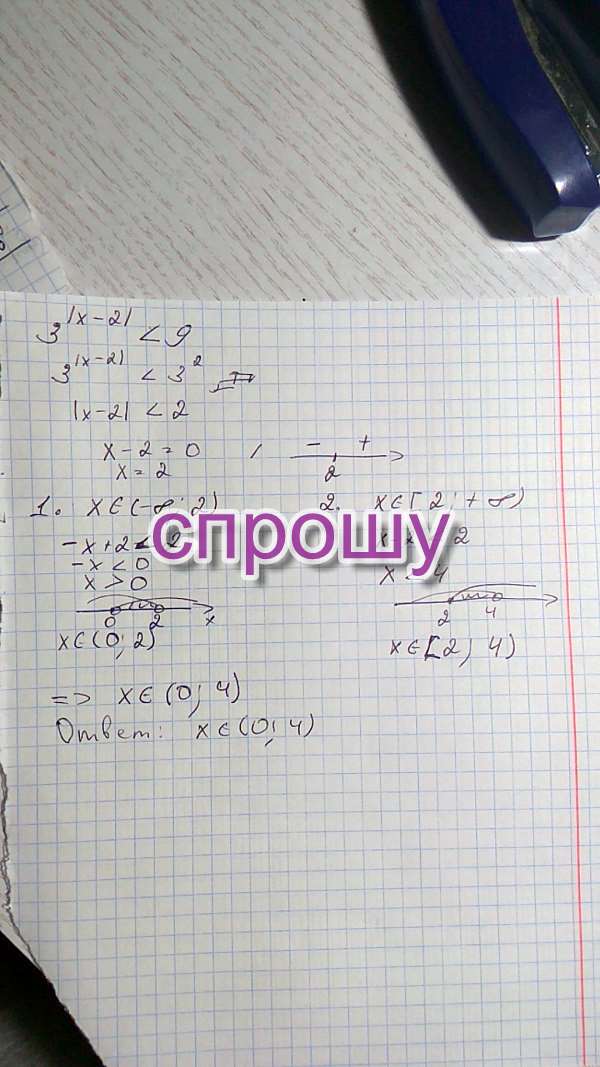 3^|x-2| < 9
3^|x-2| < 3^2
|x-2| < 2
x-2=0
x=2
- +
2
1. x∈(-∞; 2)
2. x∈[2; +∞)
спрошу
-x+2< 2
-x<0
x>0
0 2 x
x∈(0; 2)
2
x 4
2 4
x∈[2; 4)
=> x∈(0; 4)
Ответ: x∈(0; 4)